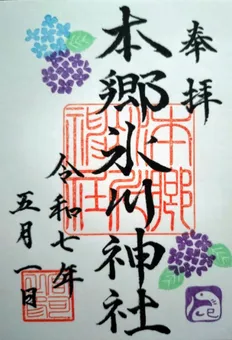 奉拝
本郷氷川神社
令和七年
五月一日
本郷
氷川
神社